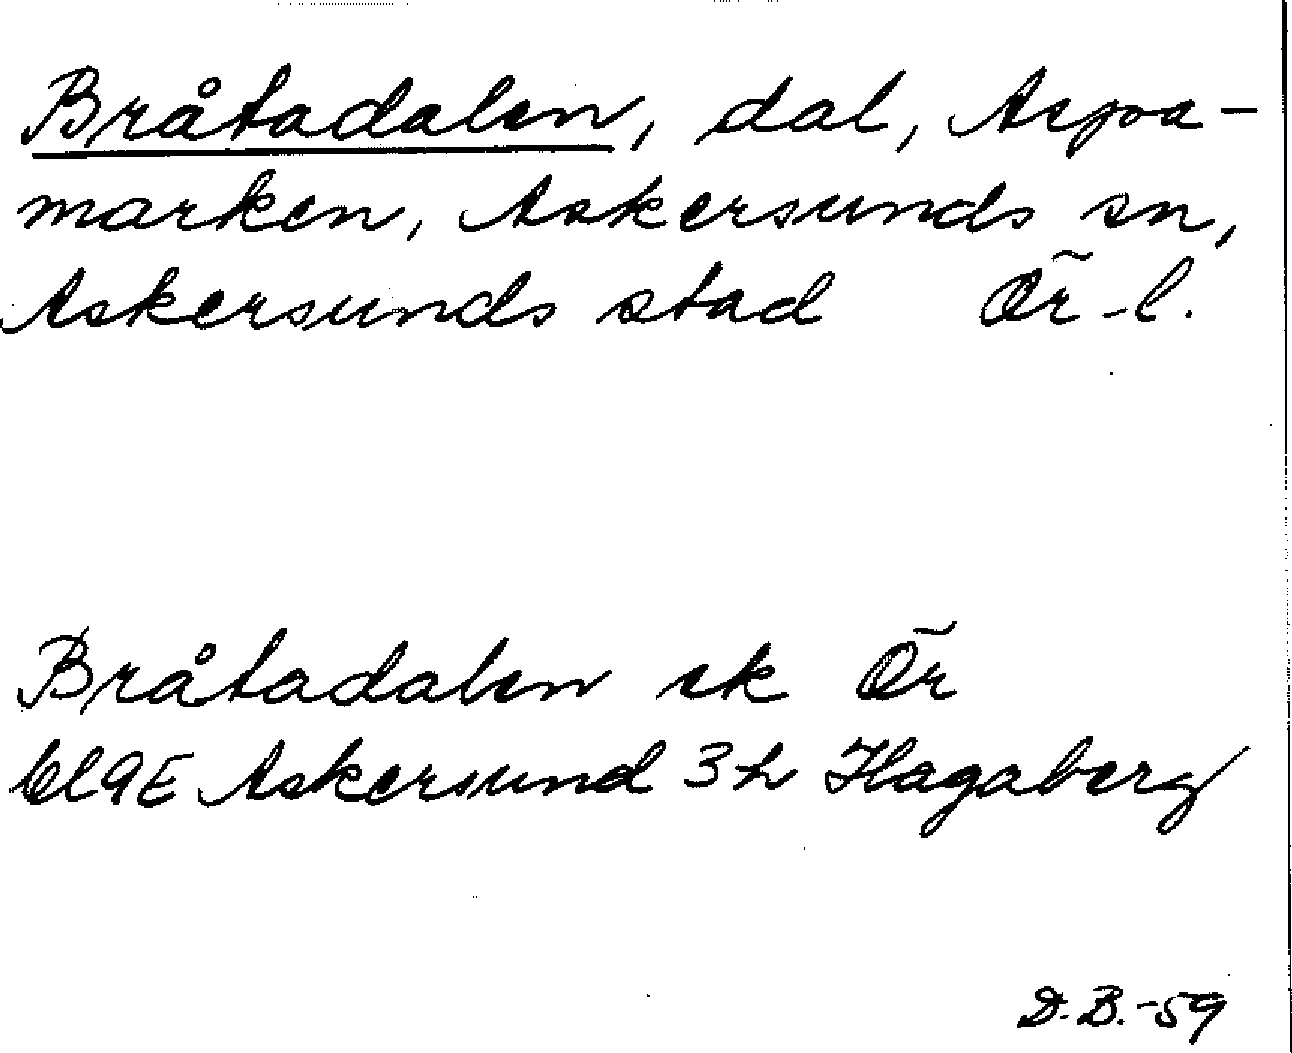 Bråtadalen, dal, Aspa-
marken, Askersunds sn,
Askersunds stad Ör-l.
Bråtadalen ek Ör
bl 9E Askersund 3h Hagaberg
D.B.-59